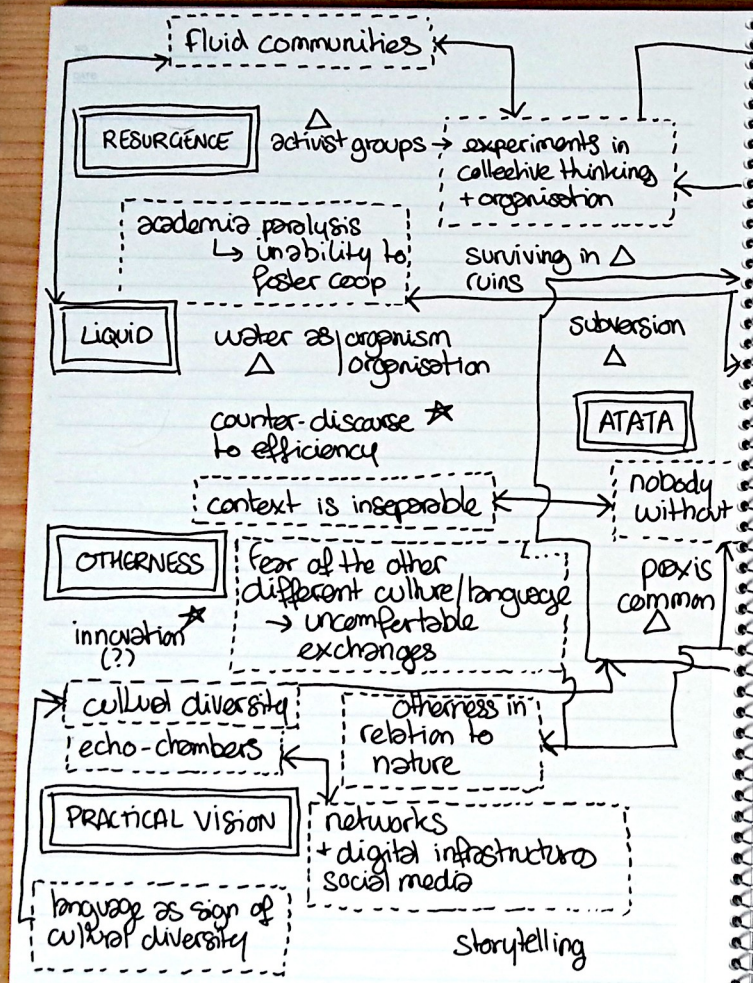 fluid communities
RESURGENCE
activist groups → experiments in
collective thinking
+ organisation
academia paralysis
↳ inability to
foster coop
surviving in
ruins
LIQUID
water as / organism
organisation
subversion
counter-discourse
to efficiency
ATATA
context is inseparable
nobody
without
OTHERNESS
fear of the other
different culture/language
→ uncomfertable
exchanges
praxis
common
innovation
(?)
cultural diversity
echo-chambers
otherness in
relation to
nature
PRACTICAL VISION
networks
+ digital infrastructures
social media
language as sign of
cultural diversity
storytelling